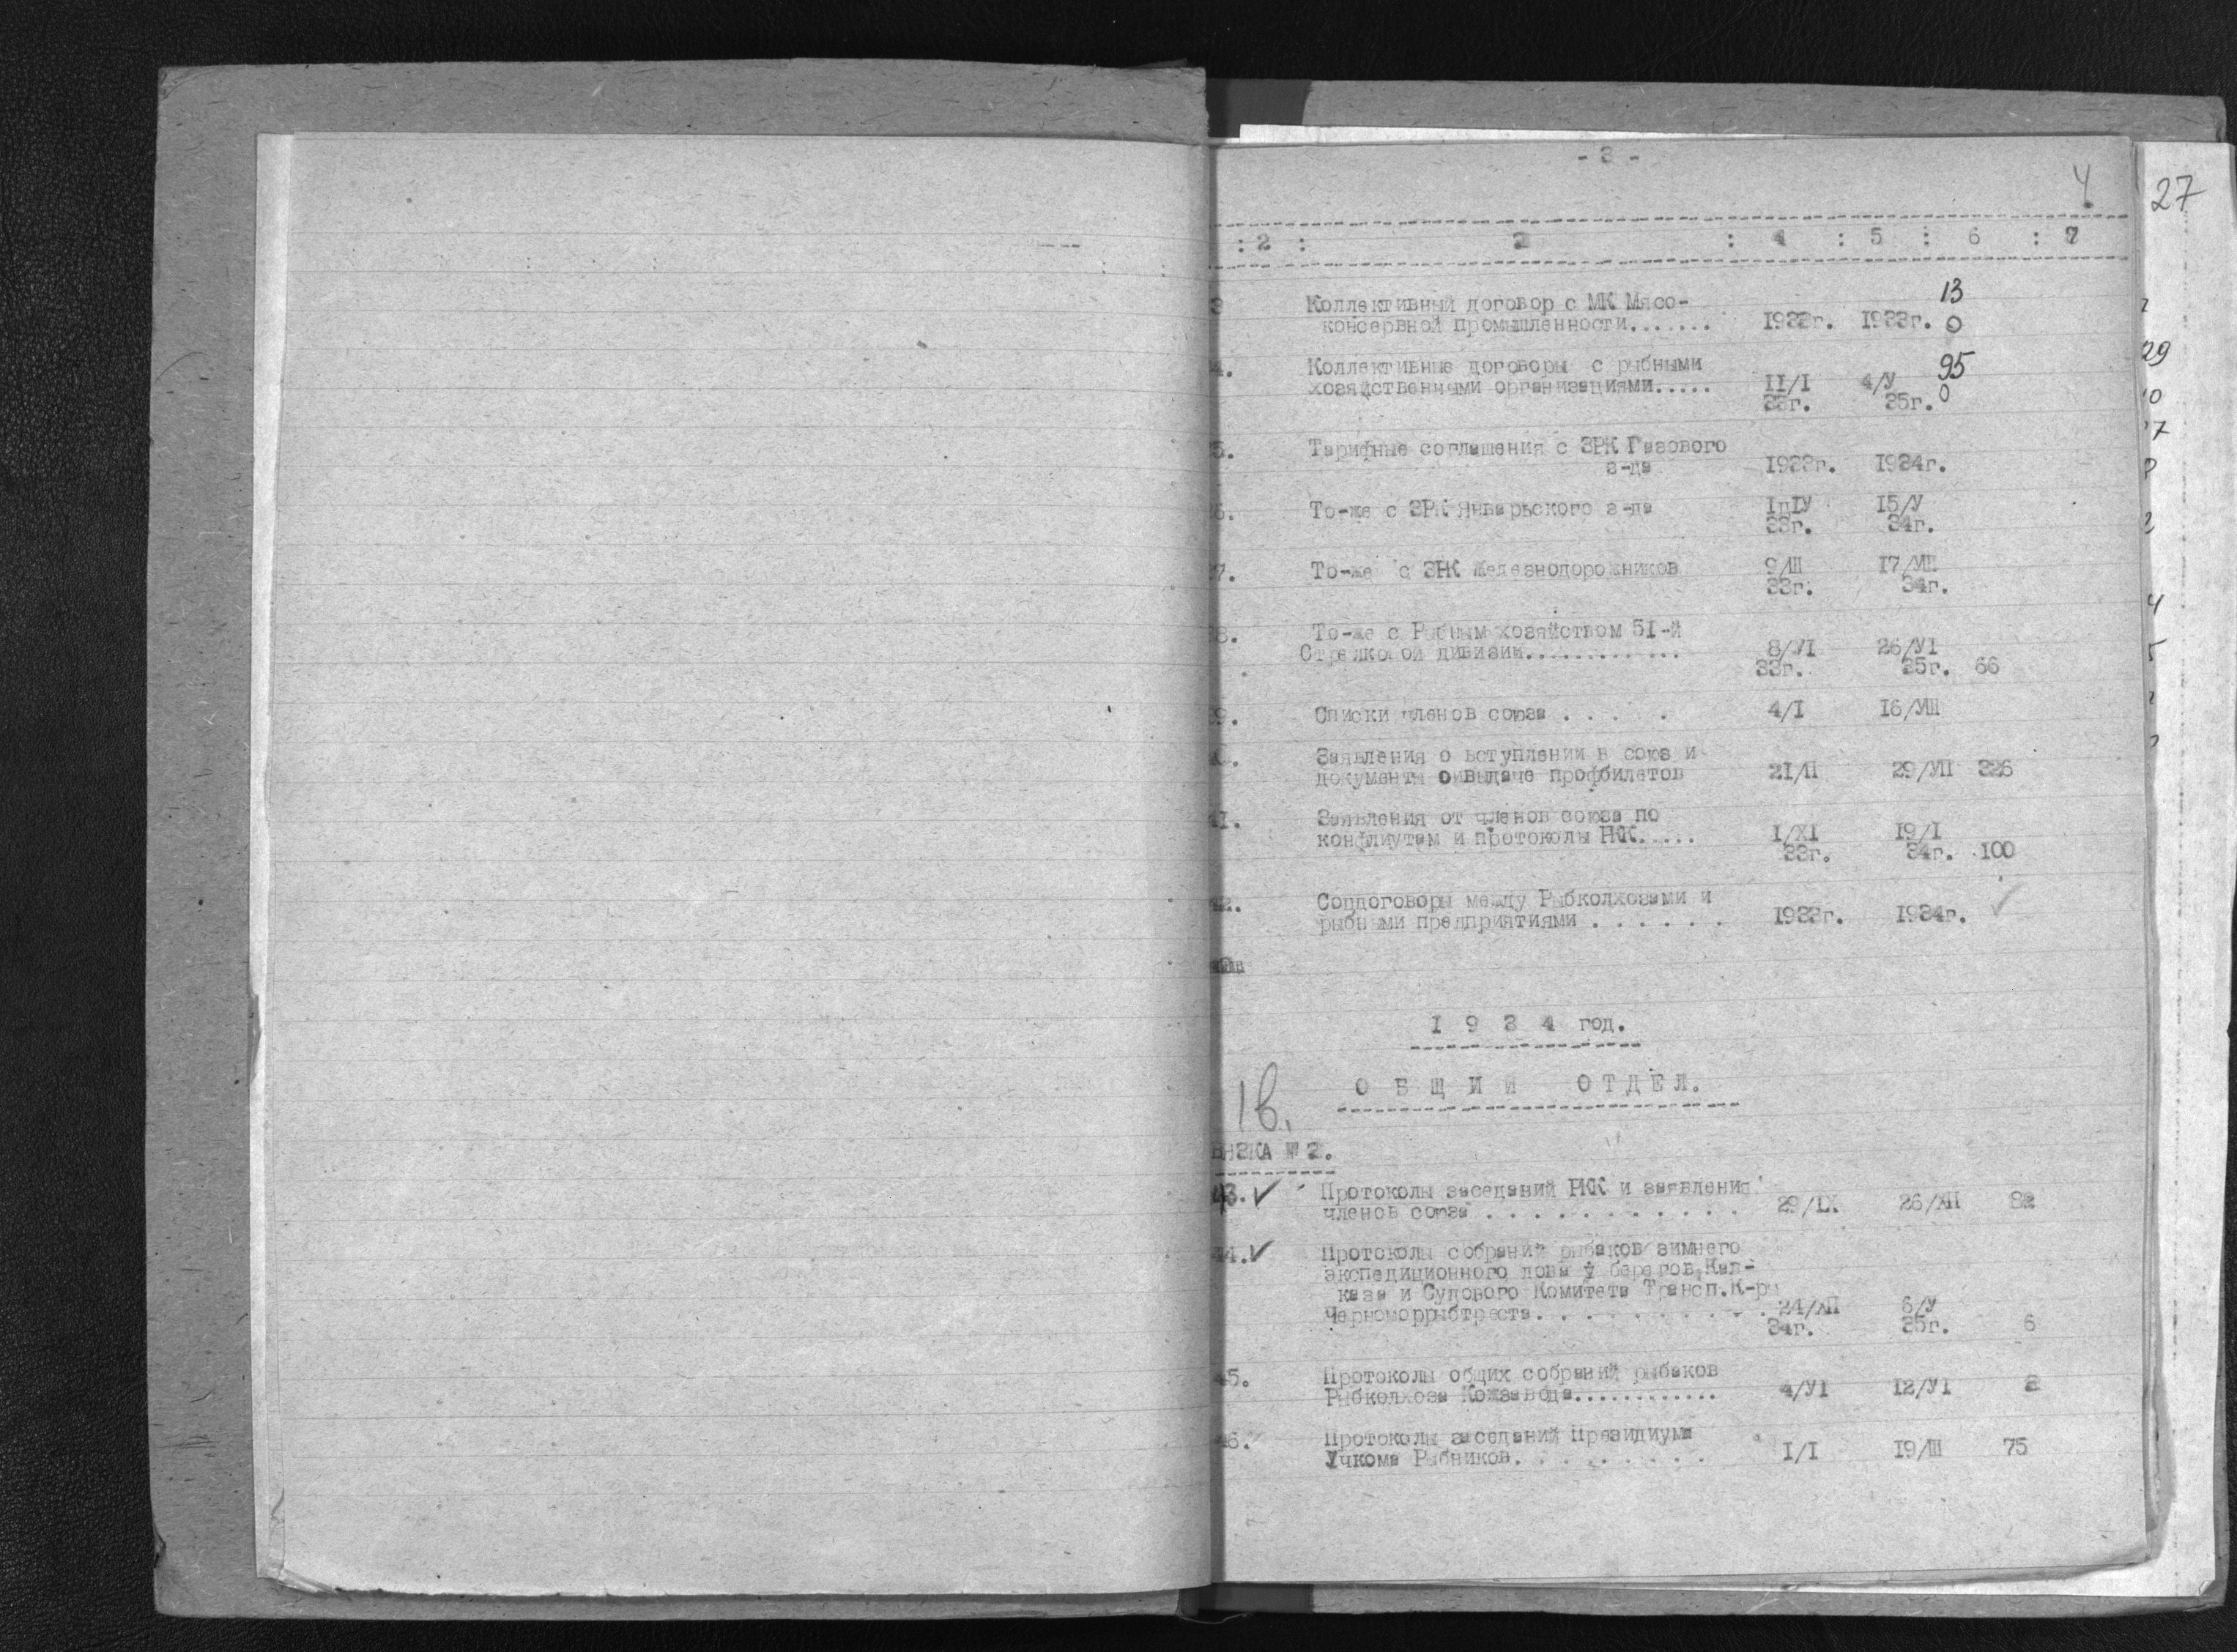 - 3 -
4
27
: 2 : 3 : 4 : 5 : 6 : 7
3 Коллективный договор с МК Мясо- 13
консервной промышленности....... 1933г. 1933г. 0
4. Коллективные договоры с рыбными 95
хозяйственными организациями..... II/I 4/У 0
33г. 35г.
5. Тарифные соглашения с ЗРК Газового
з-да 1933г. 1934г.
6. То-же с ЗРК Январьского з-да 15/У
33г. 34г.
7. То-же с ЗРК Железнодорожников 9/Ш 17/УШ
33г. 34г.
8. То-же с Рыбным хозяйством 51-й
Стрелковой дивизии............. 8/УI 26/УI
33г. 35г. 66
9. Списки членов союза . . . . . 4/I 16/УШ
Заявления о вступлении в союз и
документы о выдаче профбилетов 21/П 29/УП 326
41. Заявления от членов союза по
конфлиутам и протоколы РКК..... I/XI 19/I
33г. 34г. 100
42. Соцдоговоры между Рыбколхозами и
рыбными предприятиями . . . . . . 1933г. 1934г. ✓
I 9 3 4 год.
О Б Щ И Й О Т Д Е Л.
1в.
ВЯЗКА № 2.
43. ✓ Протоколы заседаний РКК и заявления
членов союза . . . . . . . . . . . 29/IX 26/ХП 82
44. ✓ Протоколы собраний рыбаков зимнего
экспедиционного лова у берегов Кав-
каза и Судового Комитета Трансп.К-ры
Черноморрыбтреста. . . . . . . . . . 24/ХП 6/У
34г. 35г. 6
45. Протоколы общих собраний рыбаков
Рыбколхоза Кожзавода............ 4/УI 12/УI 2
46. Протоколы заседаний Президиума
Учкома Рыбников. . . . . . . . . I/I 19/Ш 75